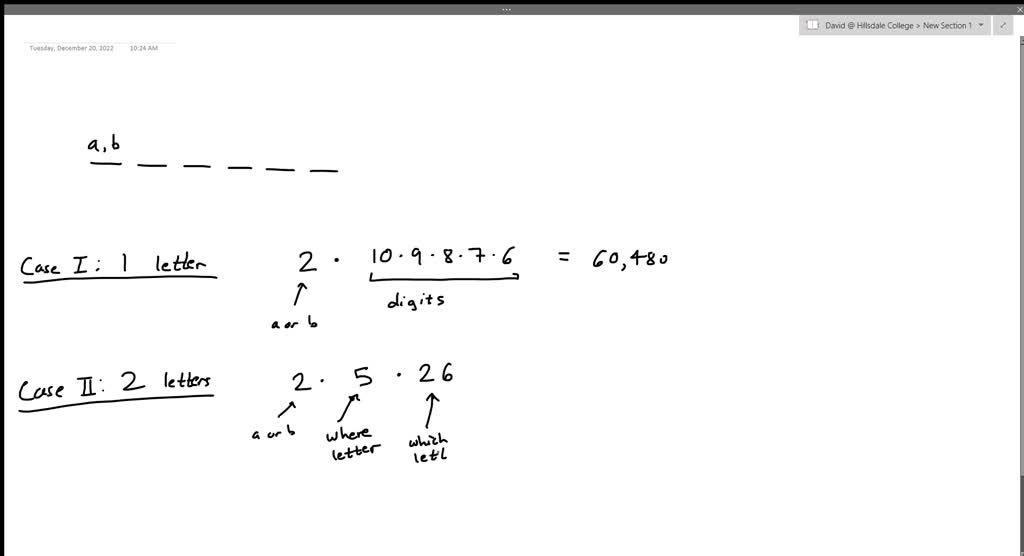 ...
David @ Hillsdale College > New Section 1
Tuesday, December 20, 2022 10:24 AM
a, b
Case I: 1 letter 2 · 10 · 9 · 8 · 7 · 6 = 60,480
digits
a or b
Case II: 2 letters 2 · 5 · 26
a or b where letter which